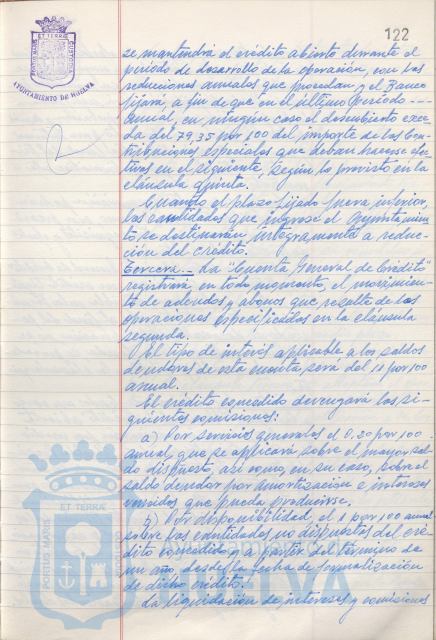 122
PORTUS MARIS ET TERRAE CUSTODIA
AYUNTAMIENTO DE HUELVA
se mantendrá el crédito abierto durante el
período de desarrollo de la operación, con las
reducciones anuales que procedan y el Banco
fijará, a fin de que en el último período
anual, en ningún caso el descubierto exce-
da del 79,35 por 100 del importe de las Con-
tribuciones especiales que deban hacerse efec-
tivas en el siguiente, según lo previsto en la
cláusula quinta.
Cuando el plazo fijado fuera inferior,
las cantidades que ingrese el Ayuntamien-
to se destinarán íntegramente a reduc-
ción del crédito.
Tercera.- La "Cuenta General de Crédito"
registrará, en todo momento, el movimien-
to de adeudos y abonos que resulte de las
operaciones especificadas en la cláusula
segunda.
El tipo de interés aplicable a los saldos
deudores de esta cuenta, será del 11 por 100
anual.
El crédito concedido devengará las si-
guientes comisiones:
a) Por servicios generales el 0,20 por 100
anual, que se aplicará sobre el mayor sal-
do dispuesto, así como, en su caso, sobre el
saldo deudor por amortización e intereses
vencidos que pueda producirse.
b) Por disponibilidad, el 1 por 100 anual
sobre las cantidades no dispuestas del cré-
dito concedido, y a partir del término de
un año, desde la fecha de formalización
de dicho crédito.
La liquidación de intereses y comisiones
PORTUS MARIS ET TERRAE
HUELVA